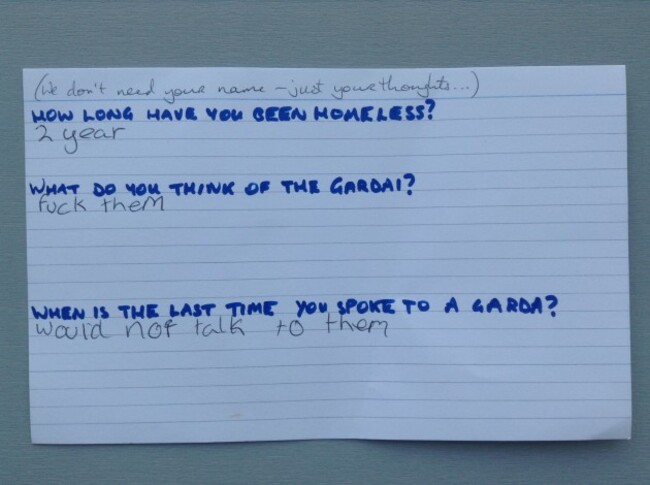 (we don't need your name – just your thoughts...)
HOW LONG HAVE YOU BEEN HOMELESS?
2 year
WHAT DO YOU THINK OF THE GARDAI?
fuck them
WHEN IS THE LAST TIME YOU SPOKE TO A GARDA?
would not talk to them